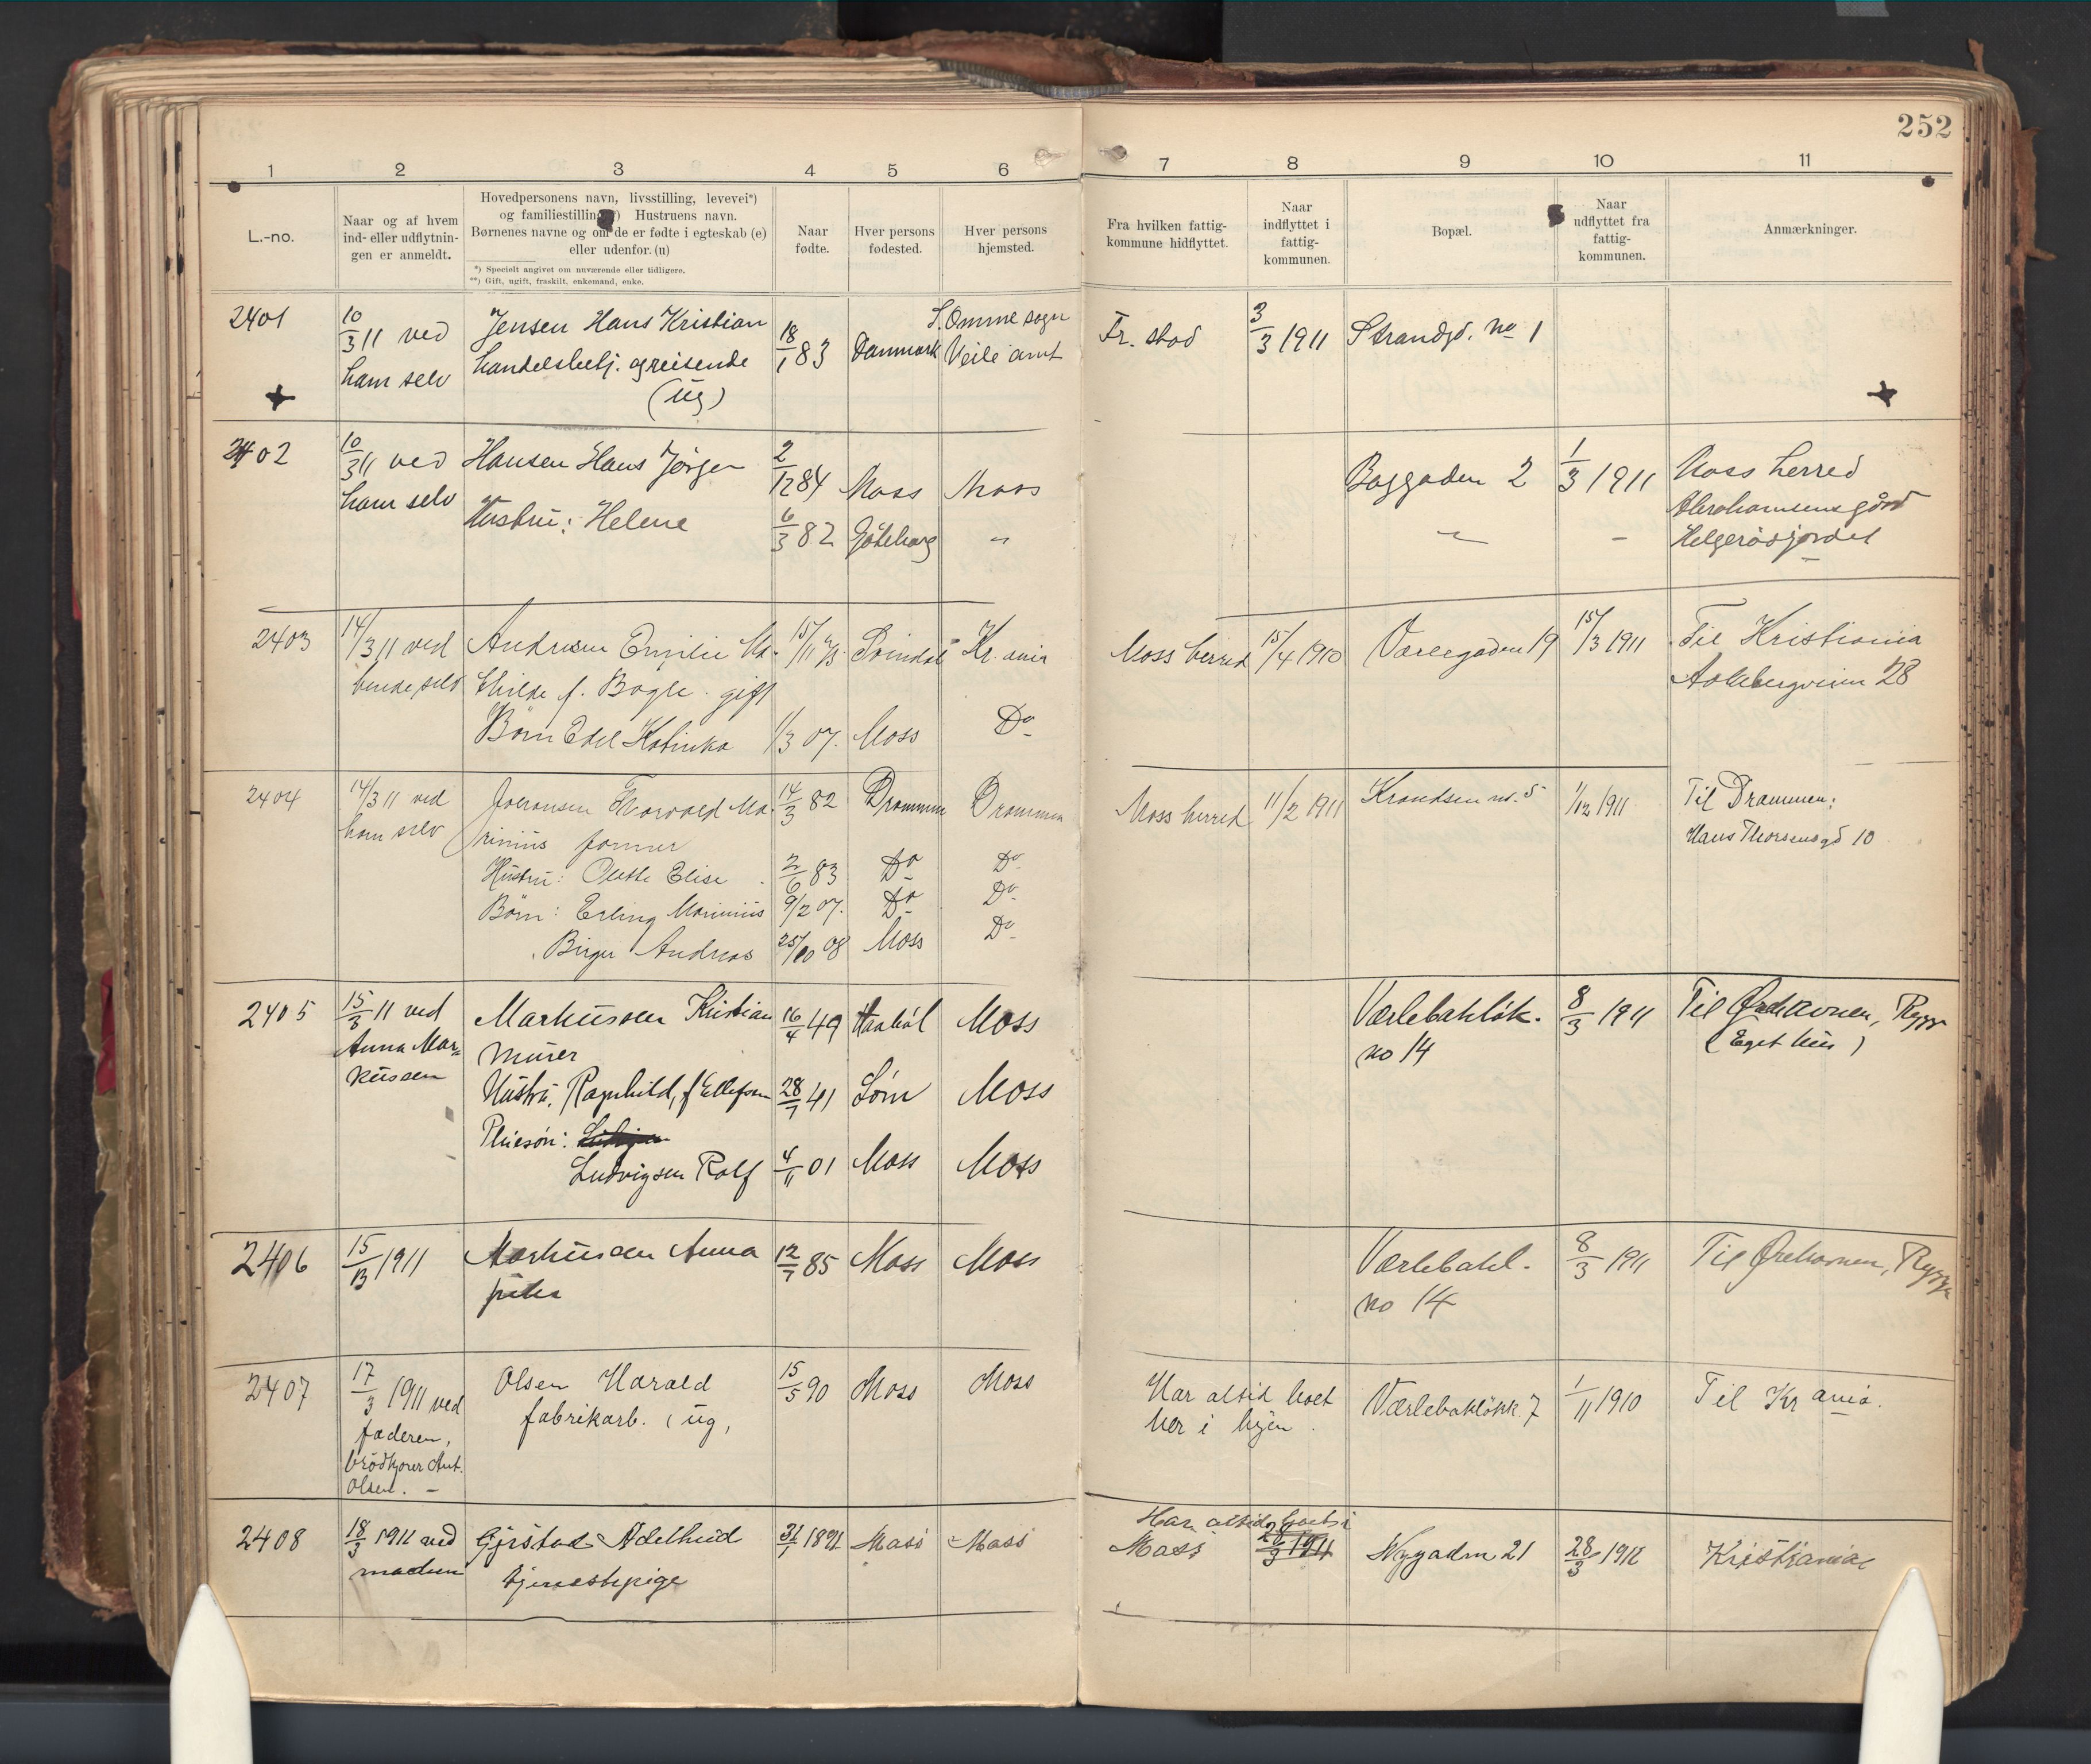 252
1 2 3 4 5 6 7 8 9 10 11
L.-no.
Naar og af hvem
ind- eller udflytnin-
gen er anmeldt.
Hovedpersonens navn, livsstilling, levevei*)
og familiestilling**) Hustruens navn.
Børnenes navne og om de er fødte i egteskab (e)
eller udenfor. (u)
*) Specielt angivet om nuværende eller tidligere.
**) Gift, ugift, fraskilt, enkemand, enke.
Naar
fødte.
Hver persons
fødested.
Hver persons
hjemsted.
Fra hvilken fattig-
kommune hidflyttet.
Naar
indflyttet i
fattig-
kommunen.
Bopæl.
Naar
udflyttet fra
fattig-
kommunen.
Anmærkninger.
2401
10/3 11 ved
ham selv
Jensen Hans Kristian
handelsbetj. og reisende
(ug)
18/1 83
Danmark
S. Omme sogn
Veile amt
Fr. stad
3/3 1911
Strandgd. no 1
2402
10/3 11 ved
ham selv
Hansen Hans Jørgen
Hustru: Helene
2/12 84
6/3 82
Moss
Göteborg
Moss
"
Baggaden 2
"
1/3 1911
-
Moss herred
Abrahamsensgård
Helgerødjordet
2403
14/3 11 ved
hende selv
Andresen Emilie Ma-
thilde f. Bøgle. gift
Børn Edel Katinka
15/11
1/3 07.
Svindal
Moss
Kr. ania
Do
Moss herred
15/4 1910
Værlegaden 19
15/3 1911
Til Kristiania
Aakebergveien 28
2404
14/3 11 ved
ham selv
Thorvald Ma-
rinius former
Hustru: Elise
Børn: Erling Marinius
Birger Andreas
14/3 82
2/6 83
9/2 07.
25/10 08
Drammen
Do
Do
Moss
Drammen
Do
Do
Do
Moss herred
11/2 1911
Krandsen no. 5
1/12 1911
Til Drammen:
Hans Thorsensgd 10
2405
15/3 11 ved
Anna Mar-
kussen
Markussen Kristian
murer
Hustru: Ragnhild, f. Ellefsen
Pleiesøn:
Ludvigsen Rolf
16/4 49
28/7 41
4/11 01
Vaabøl
Moss
Moss
Moss
Moss
Værlebakløk.
no 14
8/3 1911
Til Ørehavnen, Rygge
(Eget hus)
2406
15/3 1911
Markussen Anna
12/7 85
Moss
Moss
Værlebakl.
no 14
8/3 1911
Til Ørehavnen, Rygge
2407
17/3 1911 ved
faderen,
brødkjører Ant.
Olsen. -
Olsen Harald
fabrikarb. (ug,
15/5 90
Moss
Moss
Har altid boet
her i byen.
Værlebakløkk. 7
1/11 1910
Til Kr ania.
2408
18/3 1911 ved
moderen
Gjerstad Adelheid
tjenestepige
Moss
Moss
Har altid boet i
Moss
Nygaden 21
28/3
Kristiania